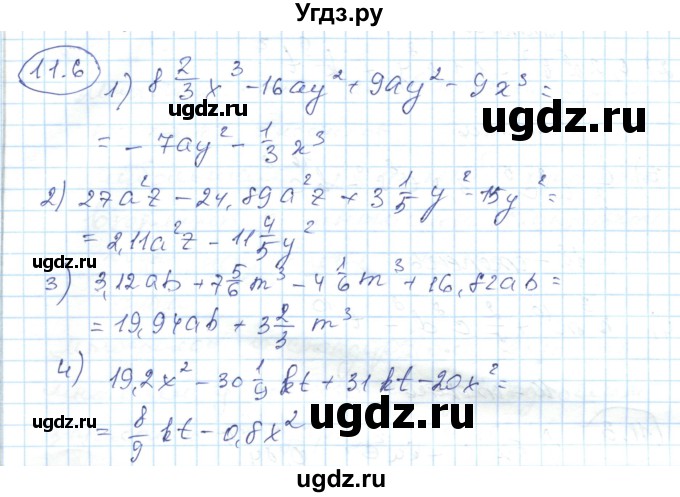 Угдз.ру
11.6
1) 8 2/3 x³ - 16ay² + 9ay² - 9x³ =
= - 7ay² - 1/3 x³
2) 27a²z - 24,89a²z + 3 1/5 y² - 15y² =
= 2,11a²z - 11 4/5 y²
3) 3,12ab + 7 5/6 m³ - 4 1/6 m³ + 16,82ab =
= 19,94ab + 3 2/3 m³
4) 19,2x² - 30 1/9 kt + 31kt - 20x² =
= 8/9 kt - 0,8x²
uдgz.ru